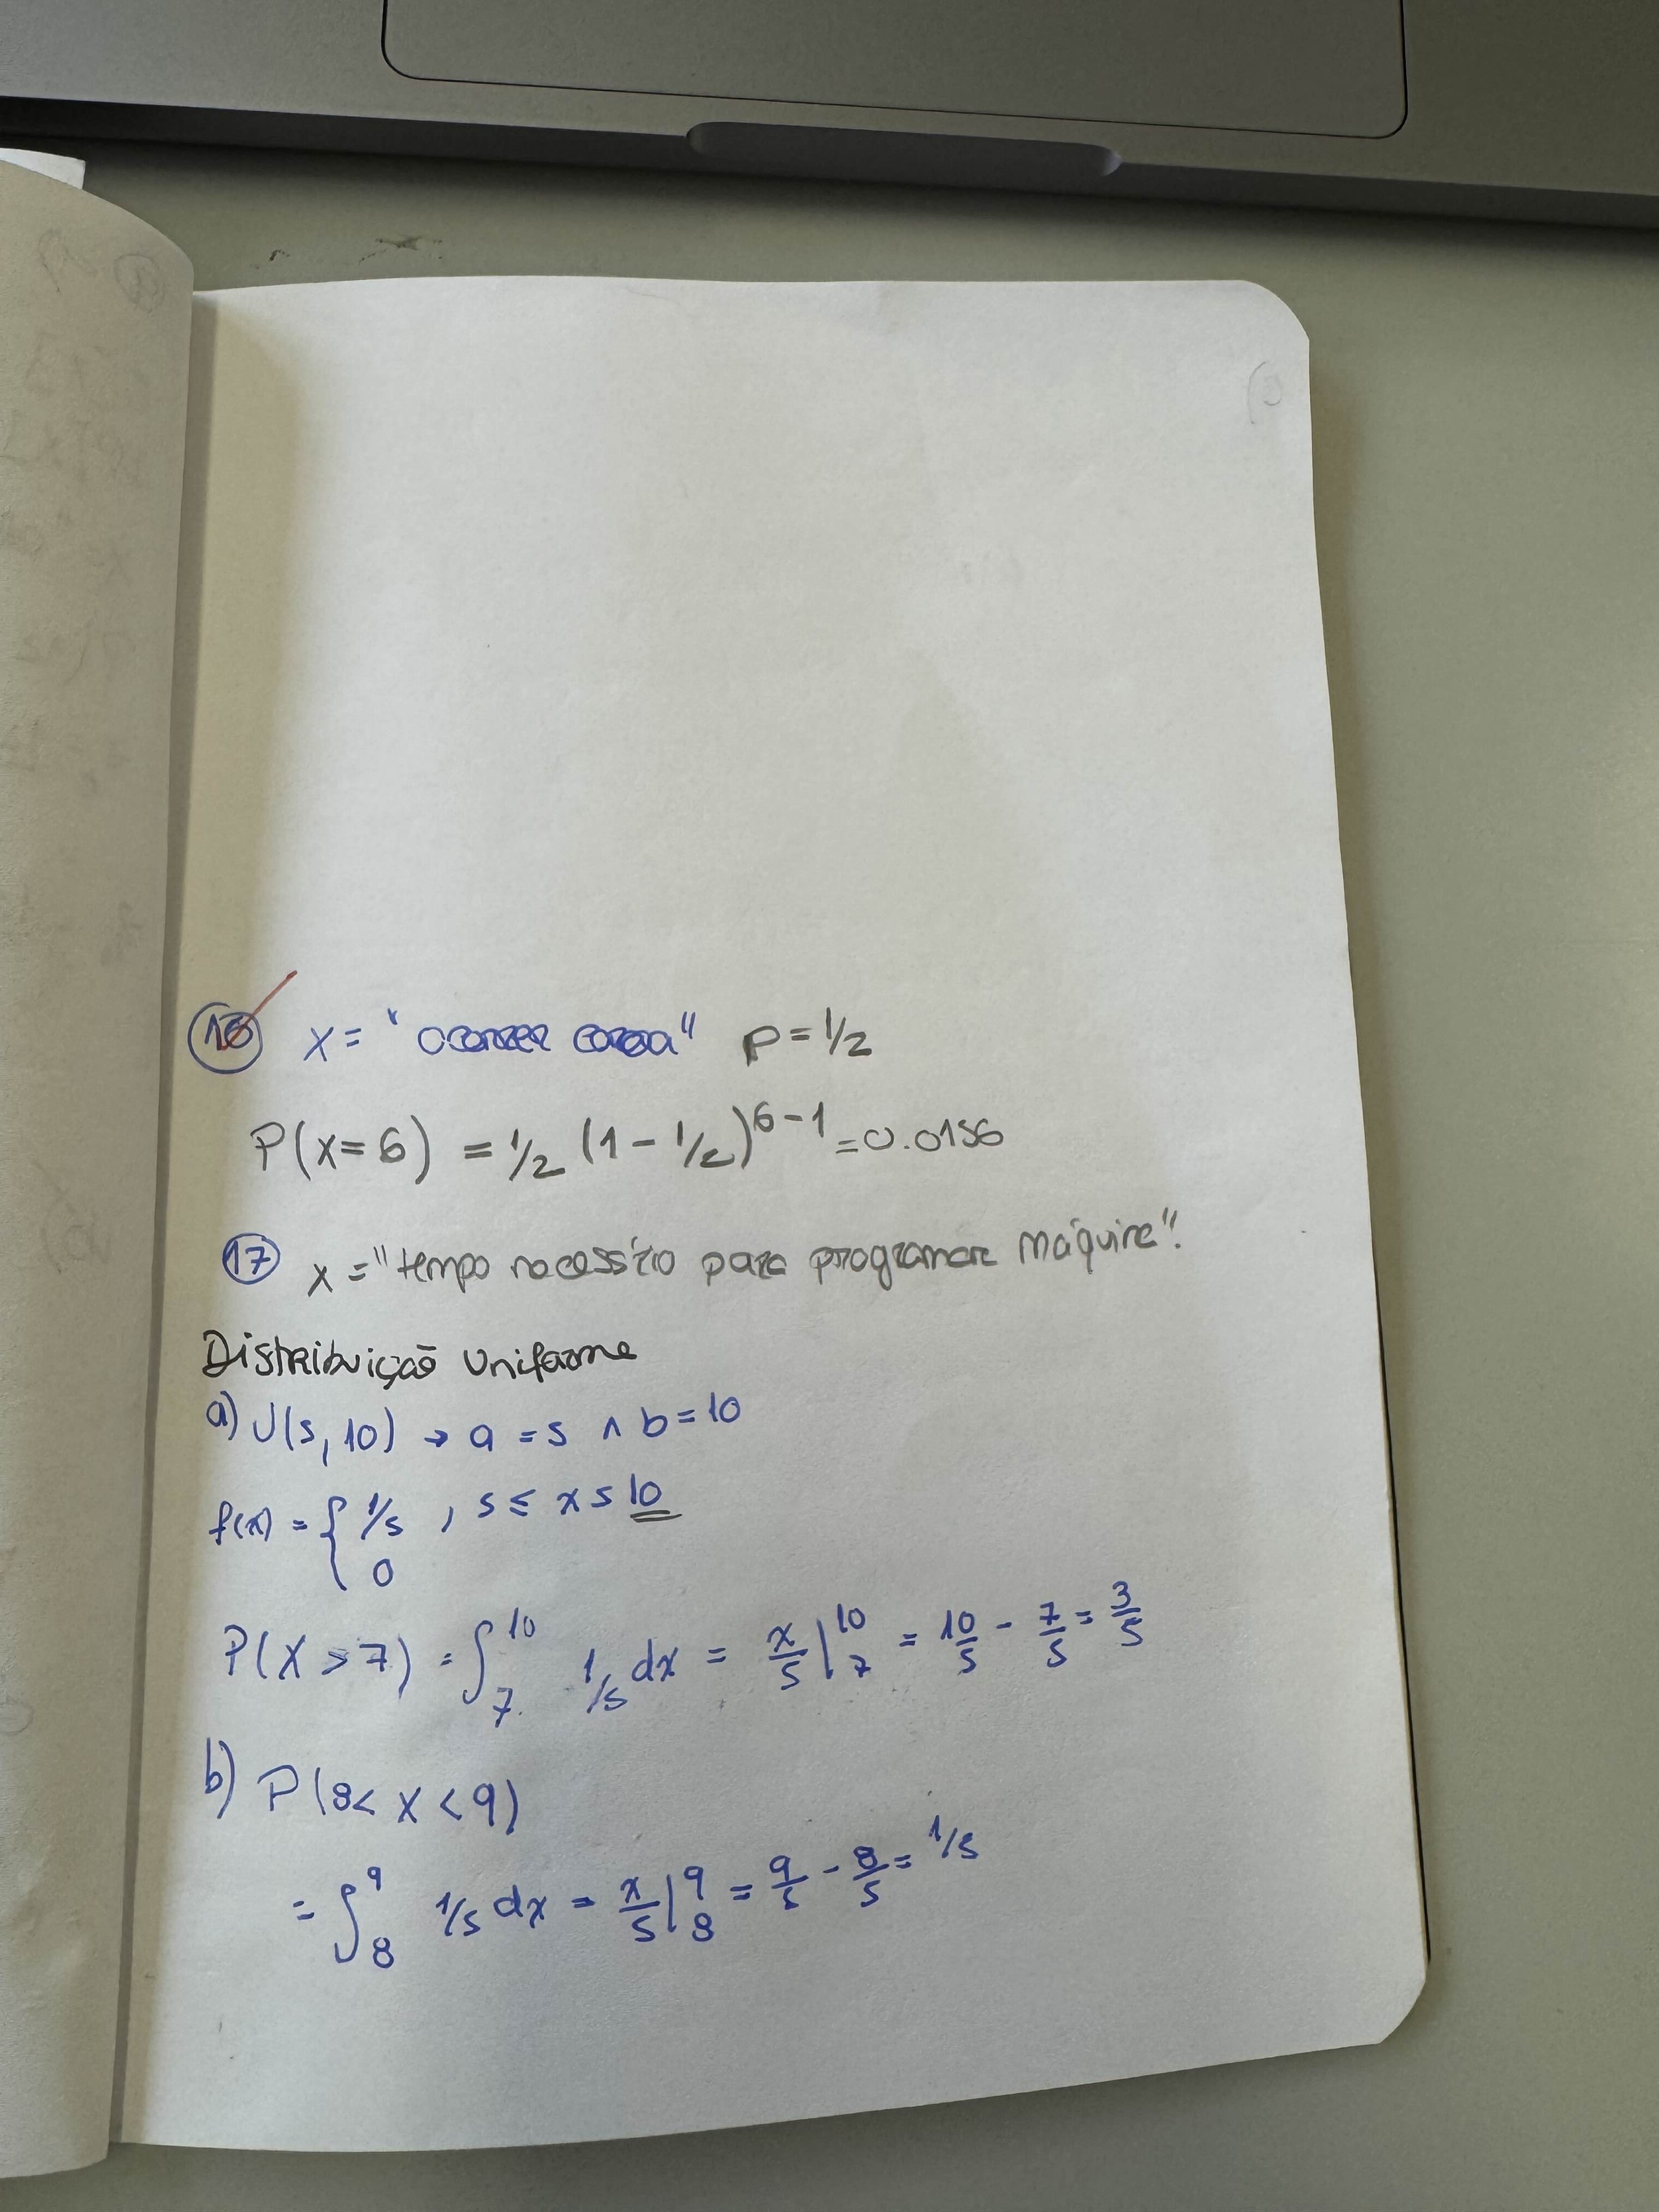 16 x = "ocorrer coroa" p = 1/2
P(x=6) = 1/2 (1 - 1/2)^6-1 = 0.0156
17 x = "tempo necessário para programar máquina".
Distribuição Uniforme
a) U(5, 10) → a = 5 ∧ b = 10
f(x) = { 1/5 , 5 ≤ x ≤ 10
0
P(X > 7) = ∫_7^10 1/5 dx = x/5 |_7^10 = 10/5 - 7/5 = 3/5
b) P(8 < X < 9)
= ∫_8^9 1/5 dx = x/5 |_8^9 = 9/5 - 8/5 = 1/5